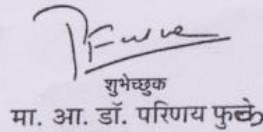 शुभेच्छुक
मा. आ. डॉ. परिणय फुके